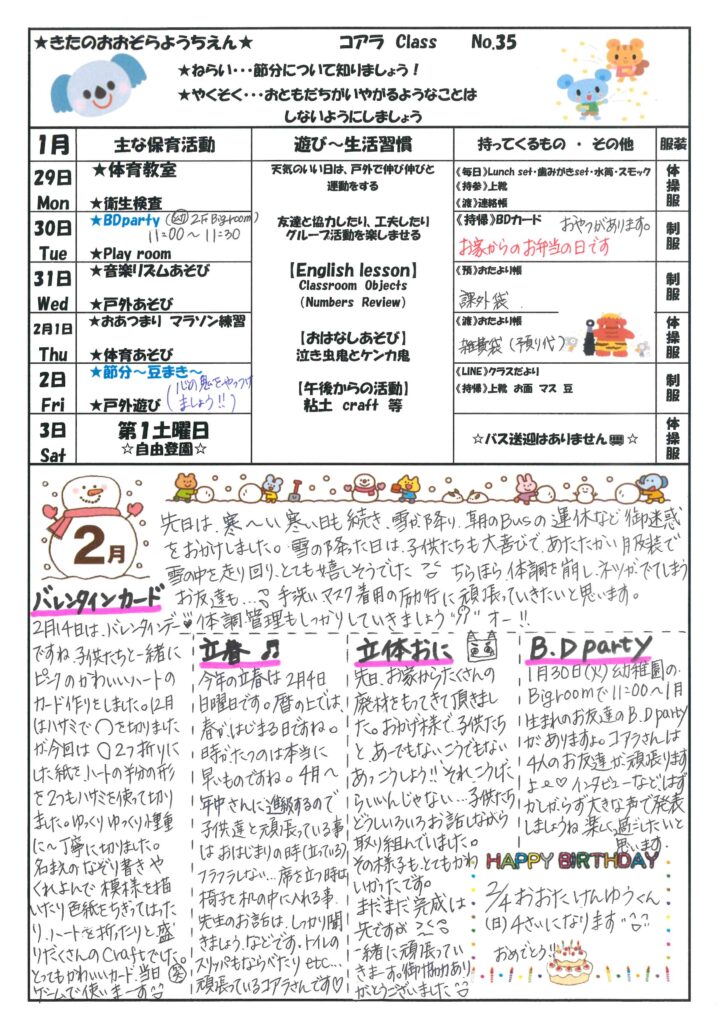 ★きたのおおぞらようちえん★　コアラ Class　No.35
★ねらい･･･節分について知りましょう！
★やくそく･･･おともだちがいやがるようなことは
しないようにしましょう
1月　主な保育活動　遊び～生活習慣　持ってくるもの ・ その他　服装
29日
Mon
★体育教室
★衛生検査
天気のいい日は、戸外で伸び伸びと
運動をする
《毎日》Lunch set・歯みがきset・水筒・スモック
《持参》上靴
《渡》連絡帳
体操服
30日
Tue
★BDparty (幼 2F Bigroom)
11:00～11:30
★Play room
友達と協力したり、工夫したり
グループ活動を楽しませる
《持帰》BDカード　おやつがあります。
お家からのお弁当の日です
制服
31日
Wed
★音楽リズムあそび
★戸外あそび
【English lesson】
Classroom Objects
(Numbers Review)
《預》おたより帳
課外袋
制服
2月1日
Thu
★おあつまり マラソン練習
★体育あそび
【おはなしあそび】
泣き虫鬼とケンカ鬼
《渡》おたより帳
雑費袋 (予預り代)
体操服
2日
Fri
★節分～豆まき～
(心の鬼をやっつけ
ましょう!!)
★戸外遊び
【午後からの活動】
粘土 craft 等
《LINE》クラスだより
《持帰》上靴 お面 マス 豆
制服
3日
Sat
第1土曜日
☆自由登園☆
☆バス送迎はありません☆
体操服
2月
先日は、寒～い寒い日も続き、雪が降り、朝のBusの運休など御迷惑
をおかけしました。雪の降った日は、子供たちも大喜びで、あたたかい服装で
雪の中を走り回り、とても嬉しそうでした ちらほら体調を崩し、ネツがでてしまう
お友達も… 手洗い、マスク着用の励行に頑張っていきたいと思います。
体調管理もしっかりしていきましょう オー!!
バレンタインカード
2月14日は、バレンタインデー♥
ですね。子供たちと一緒に
ピンクのかわいいハートの
カード作りをしました。12月
はハサミで○を切りました
が今回は○2つ折りに
した紙を、ハートの半分の形
を2つもハサミを使って切り
ました。ゆっくりゆっくり慎重
に～丁寧に切りました。
名まえのなぞり書きや
くれよんで模様を描
いたり色紙をちぎってはった
り、ハートを折ったりと盛
りだくさんのCraftでした。
とってもかわいいカード、当日
ゲームで使いまーす
立春♫
今年の立春は2月4日
日曜日です。暦の上では、
春がはじまる日ですね。
時がたつのは本当に
早いものですね。4月～
年中さんに進級するので
子供達と頑張っている事
はおはじまりの時(立っている)
フラフラしない…席を立つ時は
椅子を机の中に入れる事。
先生のお話は、しっかり聞
きましょう、などです。トイレの
スリッパもならべたりetc…
頑張っているコアラさんです♡
立体おに
先日、お家からたくさんの
廃材をもってきて頂きまし
た。おかげ様で、子供たち
と、あーでもないこうでもない
あっ こうしよう!! それ、こうした
らいいんじゃない…子供たち
どうしいろいろお話しながら
取り組んでいました。
その様子も、とてもかわ
いかったです。
まだまだ完成は
先ですが
一緒に頑張ってい
きまーす。御協力あり
がとうございました
B.D party
1月30日(火)幼稚園の
Bigroomで11:00～1月
生まれのお友達のB.D party
がありますよ。コアラさんは
4人のお友達が頑張ります
よ～♡インタビューなどはず
かしがらず大きな声で発表
しましょうね。楽しく過ごしたいと
思います。
HAPPY BIRTHDAY
2/4 おおた けんゆうくん
(日) 4さいになります
おめでとう!!